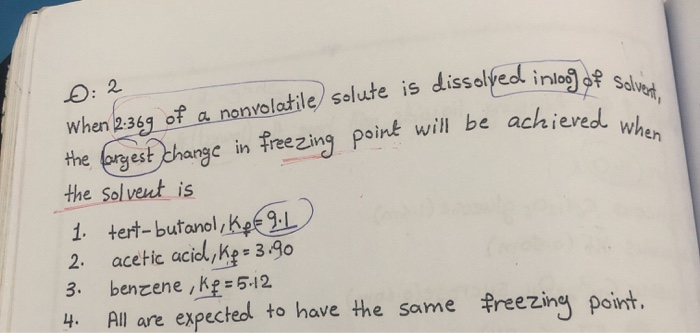 Q: 2
When 2.36g of a nonvolatile solute is dissolved in 100g of solvent,
the largest change in freezing point will be achieved when
the solvent is
1. tert-butanol, Kf = 9.1
2. acetic acid, Kf = 3.90
3. benzene, Kf = 5.12
4. All are expected to have the same freezing point.